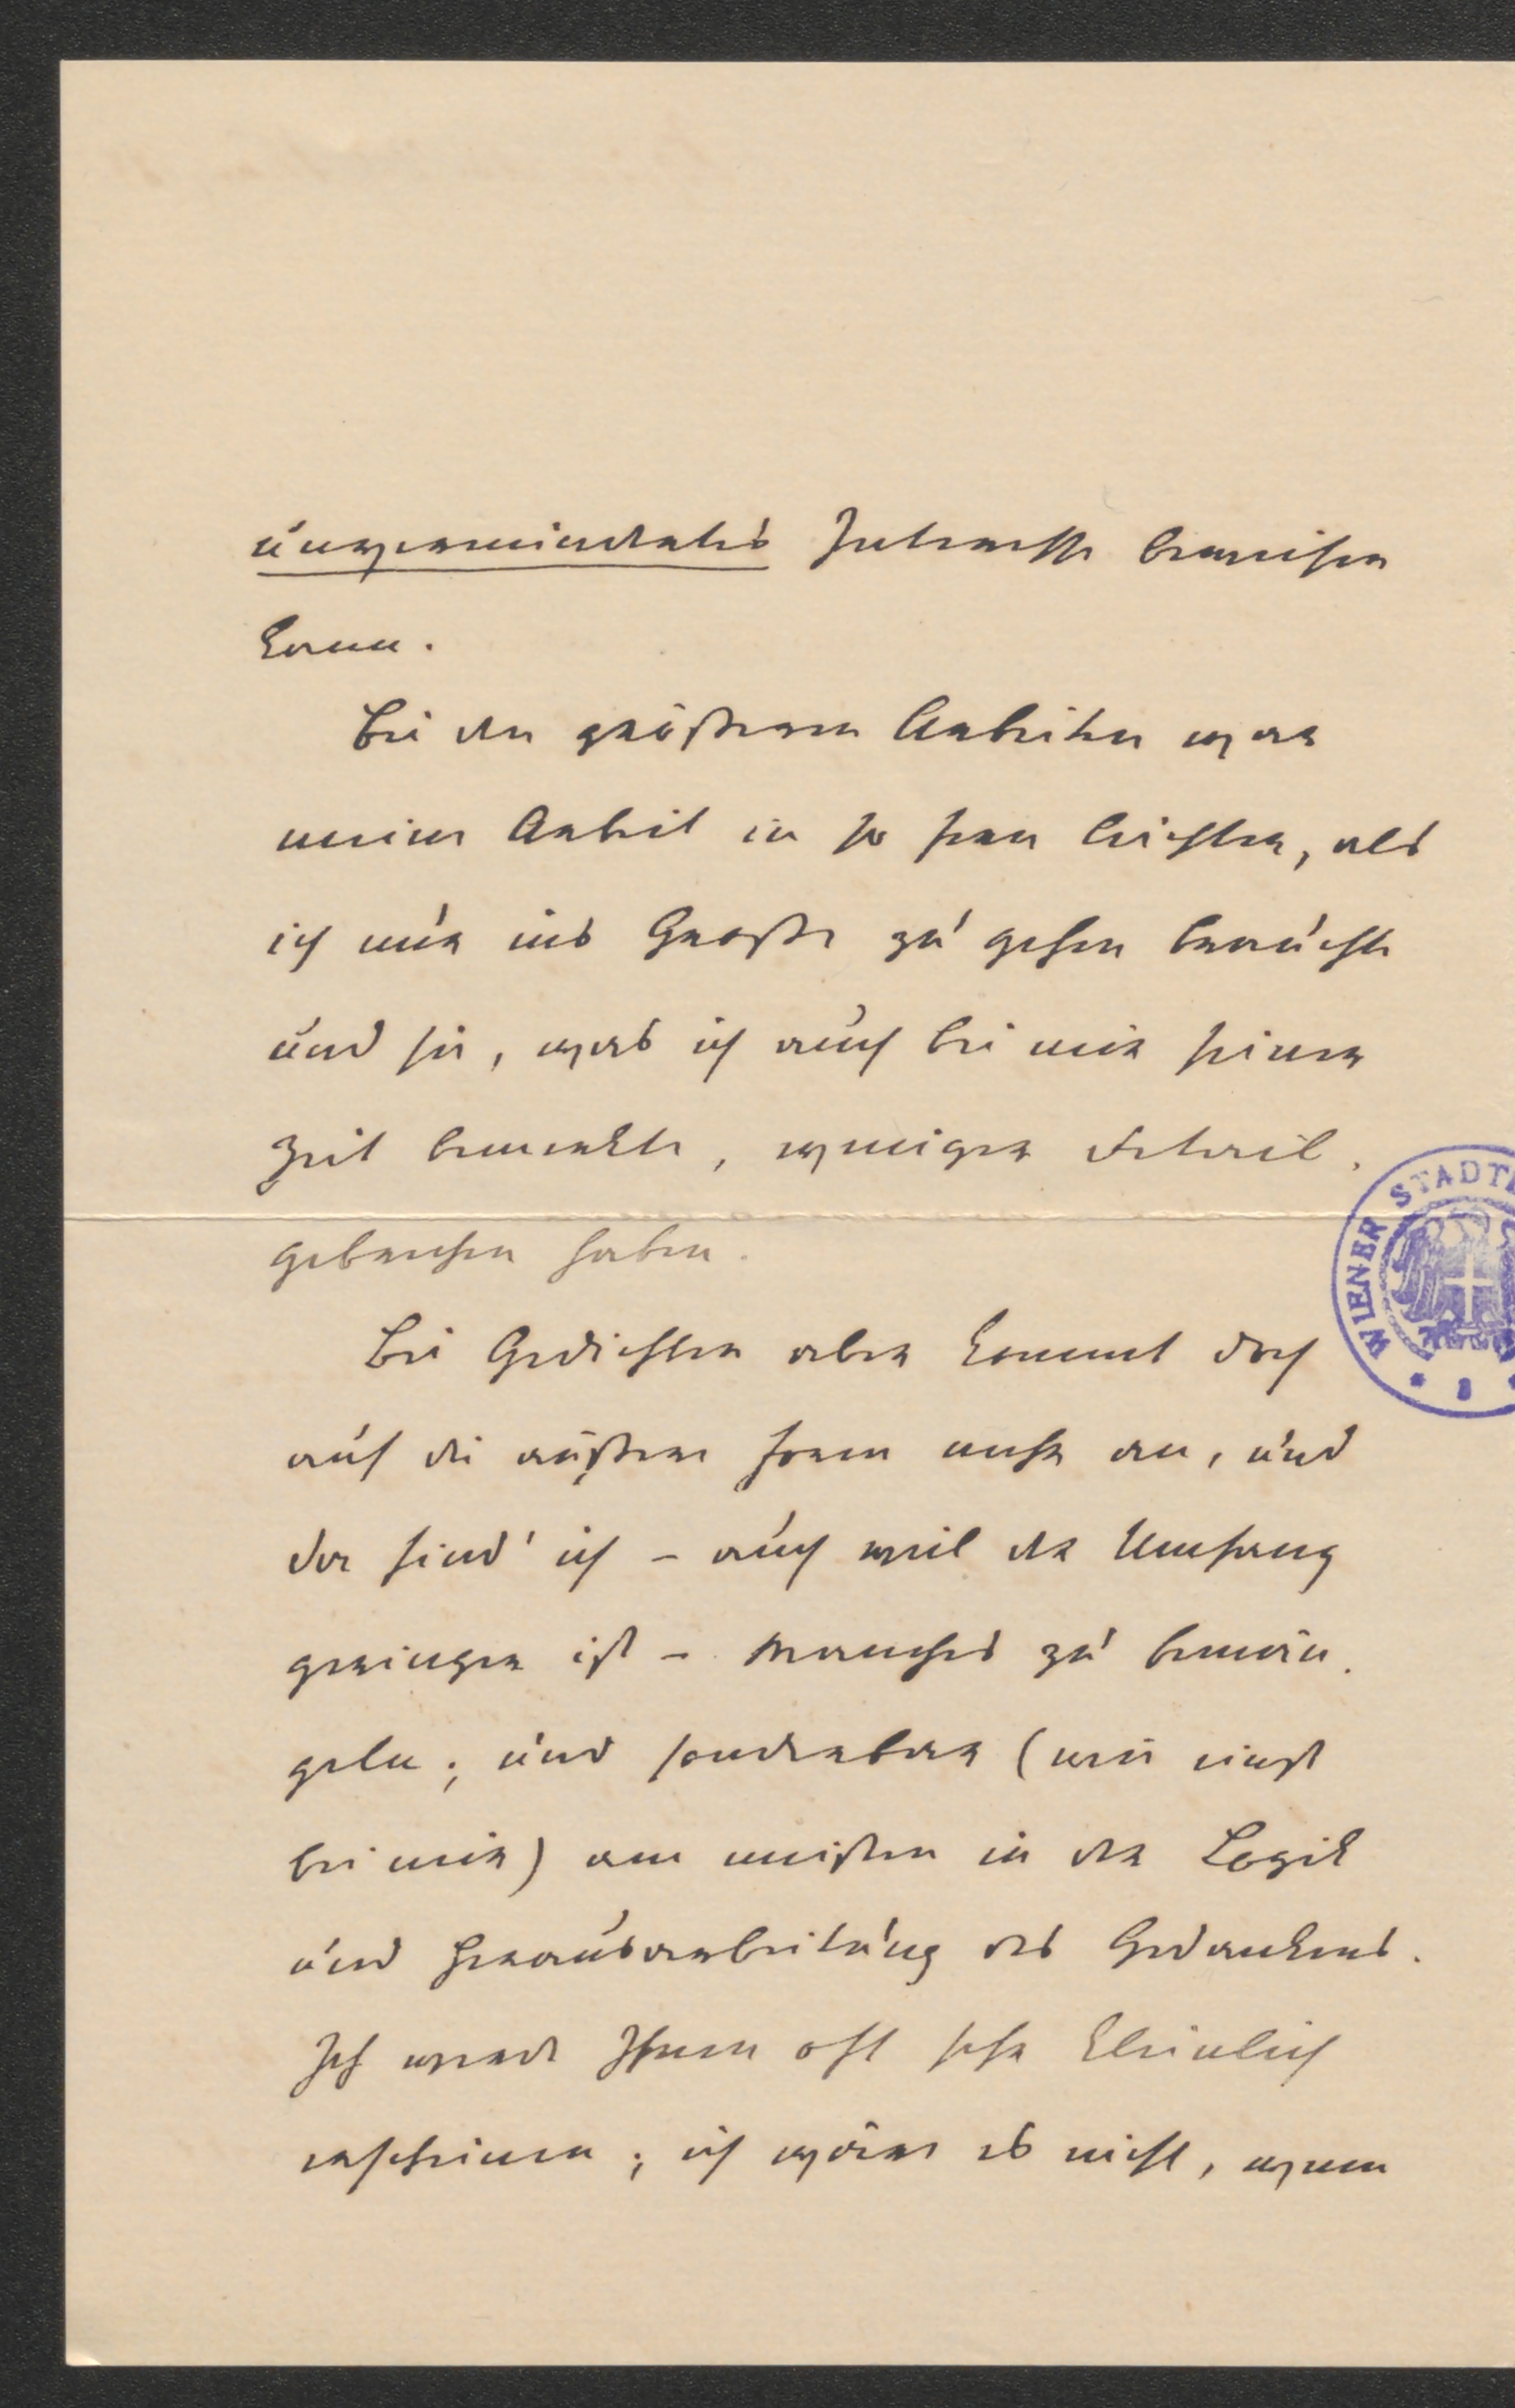 unvermindertes Interesse beweisen
kann.
Bei den größeren Arbeiten war
meine Arbeit in so fern leichter, als
ich nur ins Große zu gehen brauchte
und sie, was ich auch bei mir seiner
Zeit bemerkte, weniger Detail-
gebrechen haben.
Bei Gedichten aber kommt doch
auf die äußere Form mehr an, und
da find' ich – auch weil der Umfang
geringer ist – Manches zu bemän-
geln; und sonderbar (wie einst
bei mir) am meisten in der Logik
und Herausarbeitung des Gedankens.
Ich werde Ihnen oft sehr kleinlich
erscheinen; ich wäre es nicht, wenn
WIENER STADT